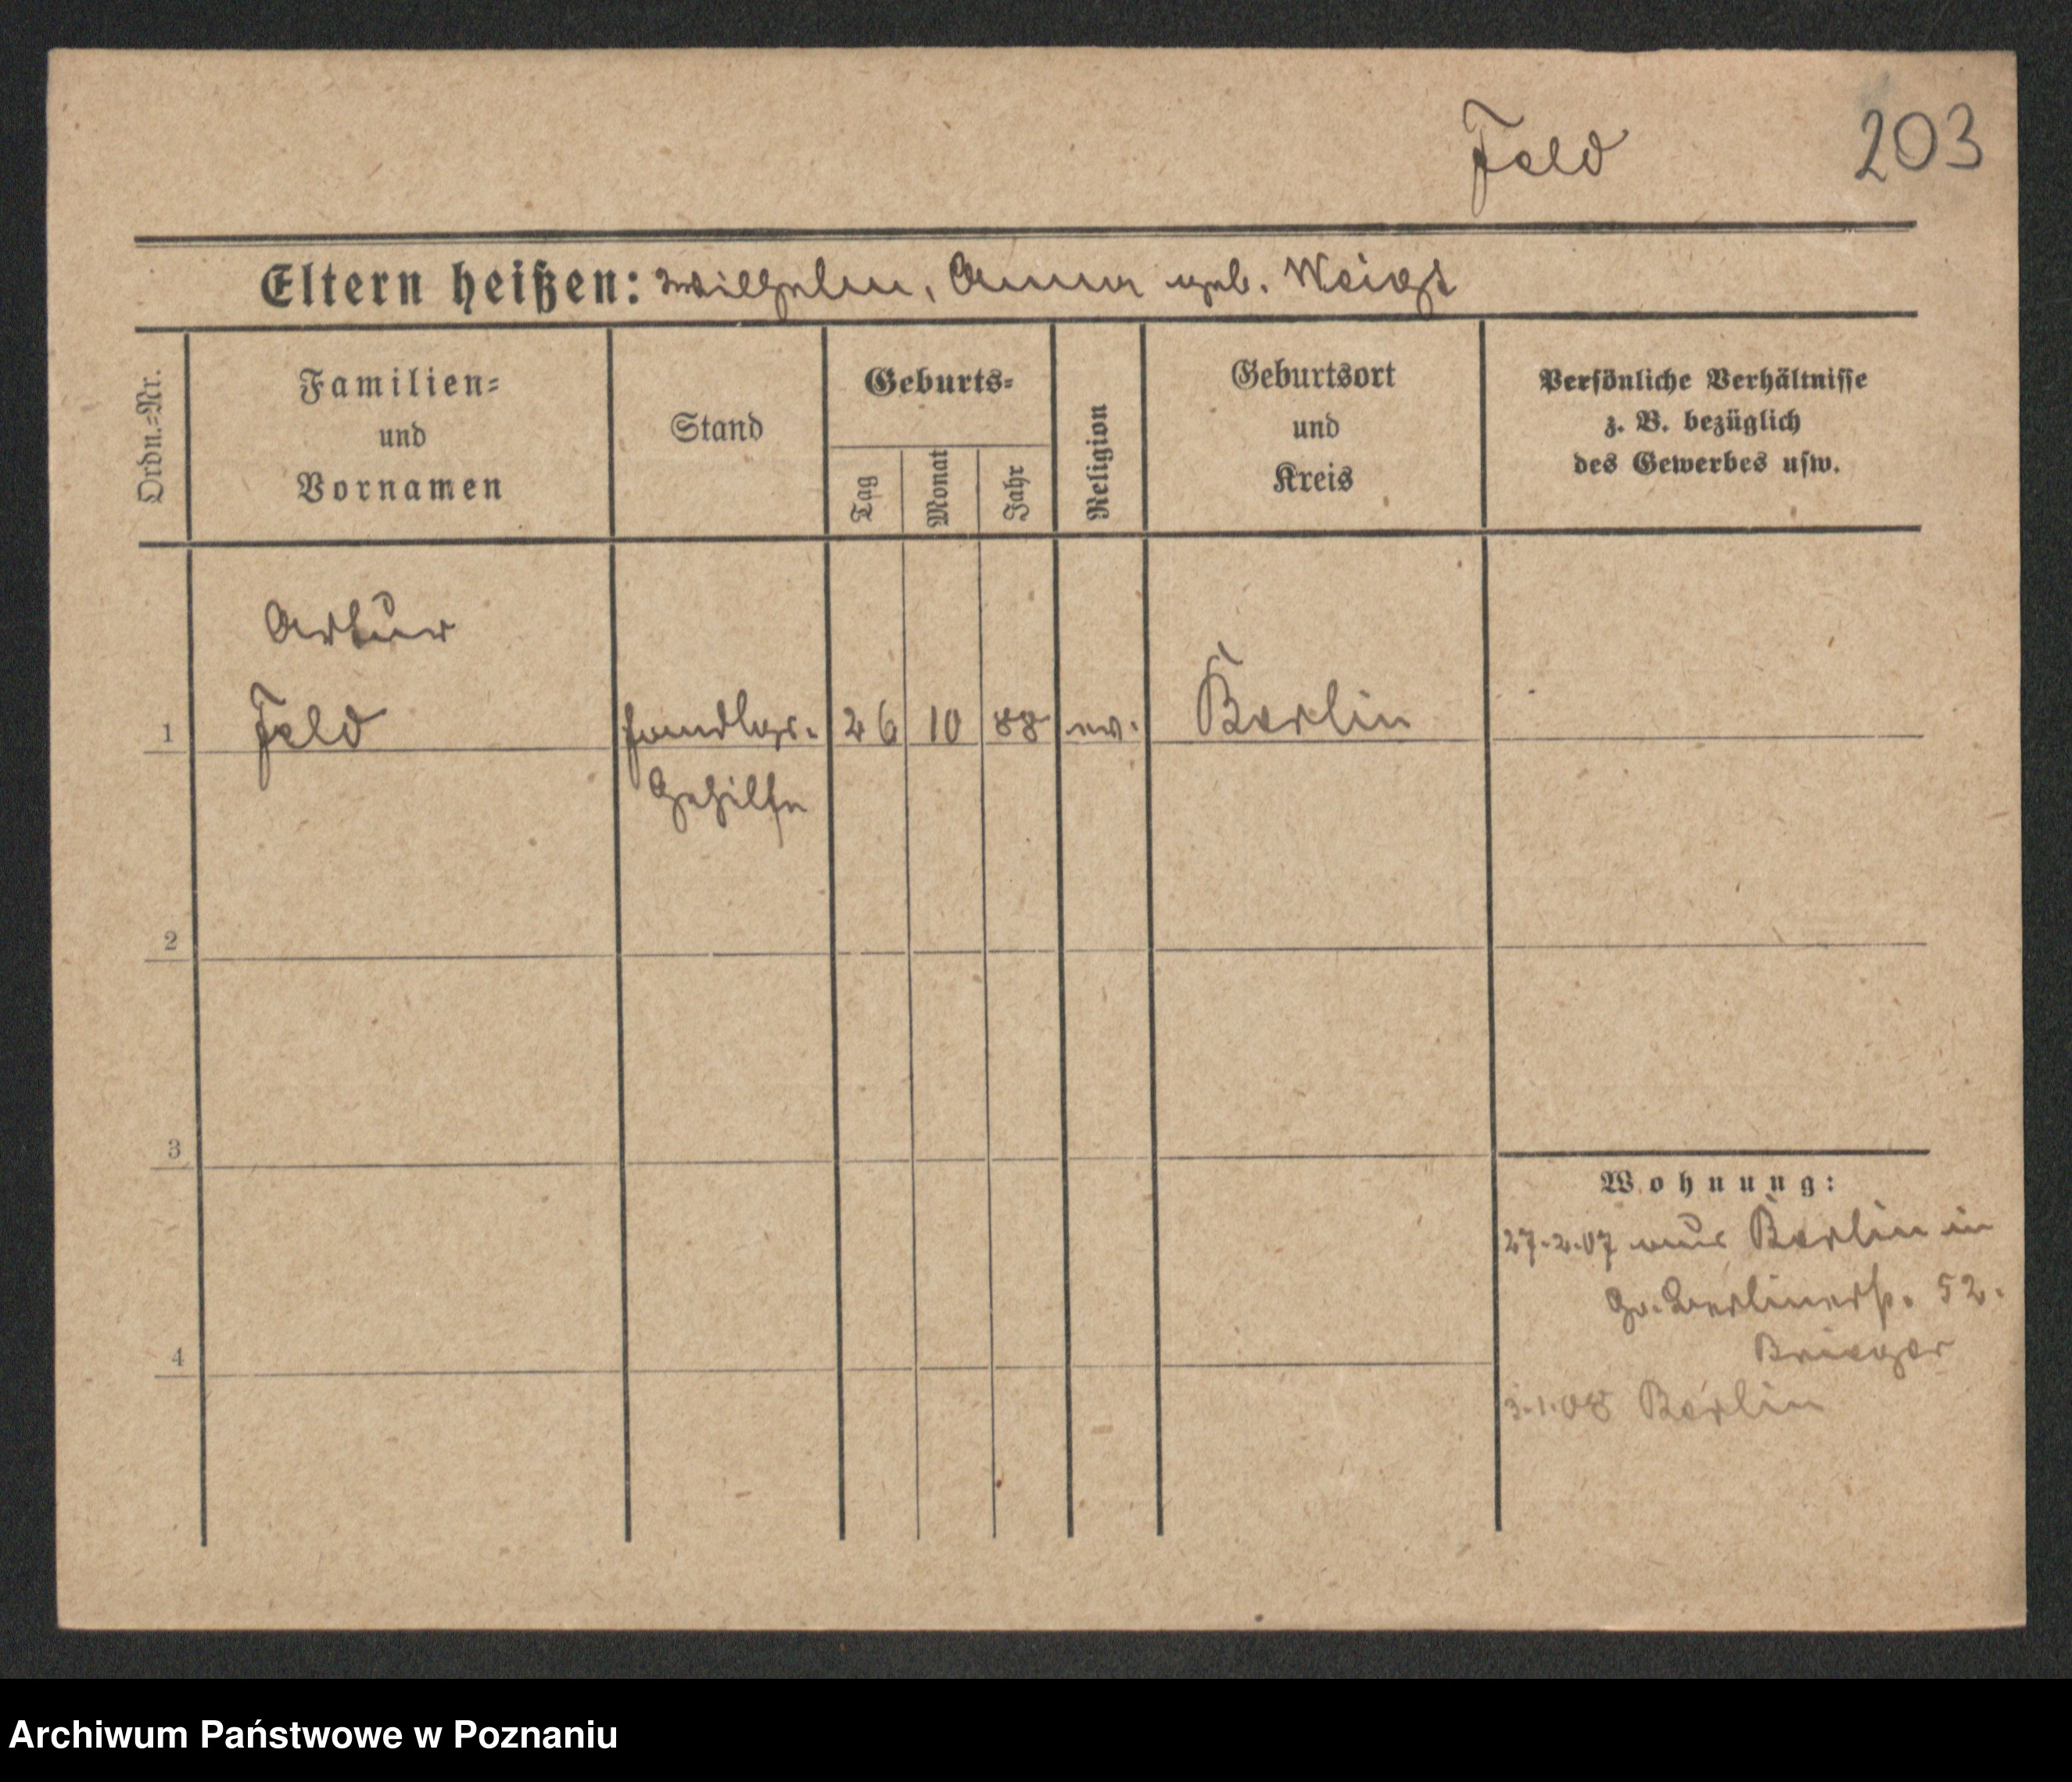 Feld 203
Eltern heißen: Wilhelm, Anna geb. Weigt
Ordn.=Nr.
Familien=
und
Vornamen
Stand
Geburts=
Tag
Monat
Jahr
Religion
Geburtsort
und
Kreis
Persönliche Verhältnisse
z. B. bezüglich
des Gewerbes usw.
Artur
1 Feld Handlgs. 26 10 88 ev. Berlin
Gehilfe
2
3
Wohnung:
27.2.07 aus Berlin in
Gr. Berlinerstr. 52.
4
Krieger
3.1.08 Berlin
Archiwum Państwowe w Poznaniu